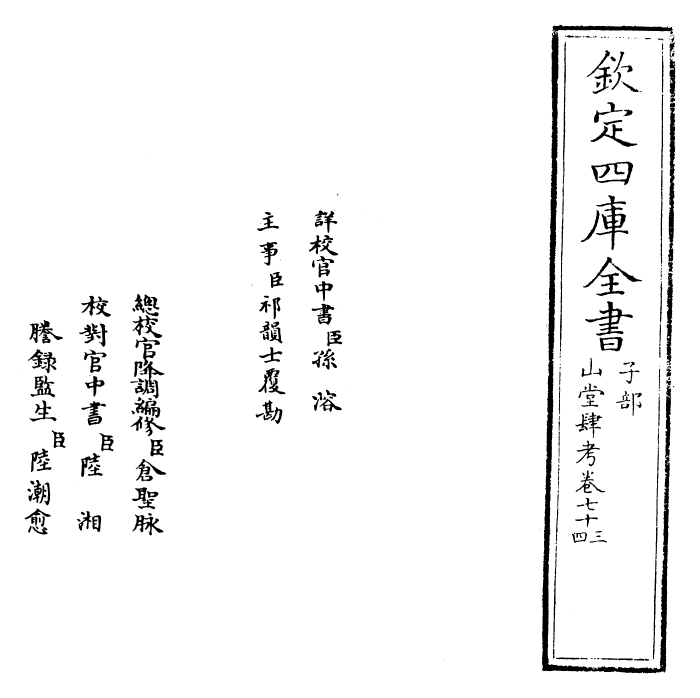 欽定四庫全書
子部
山堂肆考卷七十三四
詳校官中書臣孫溶
主事臣祁韻士覆勘
總校官降調編修臣倉聖脉
校對官中書臣陸湘
謄錄監生臣陸潮愈